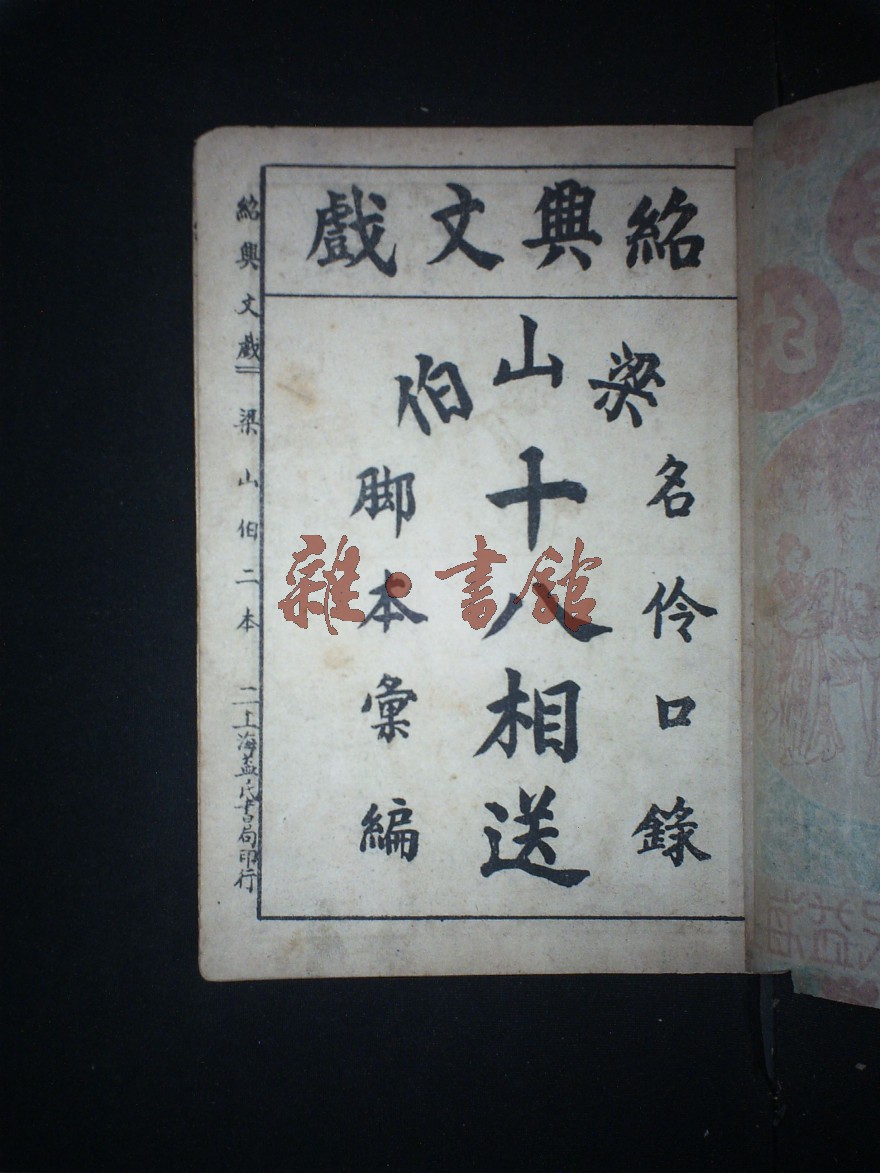 紹興文戲
梁山伯
名伶口錄
十八相送
脚本彙編
紹興文戲 梁山伯二本 二 上海益民書局印行
雜·書館